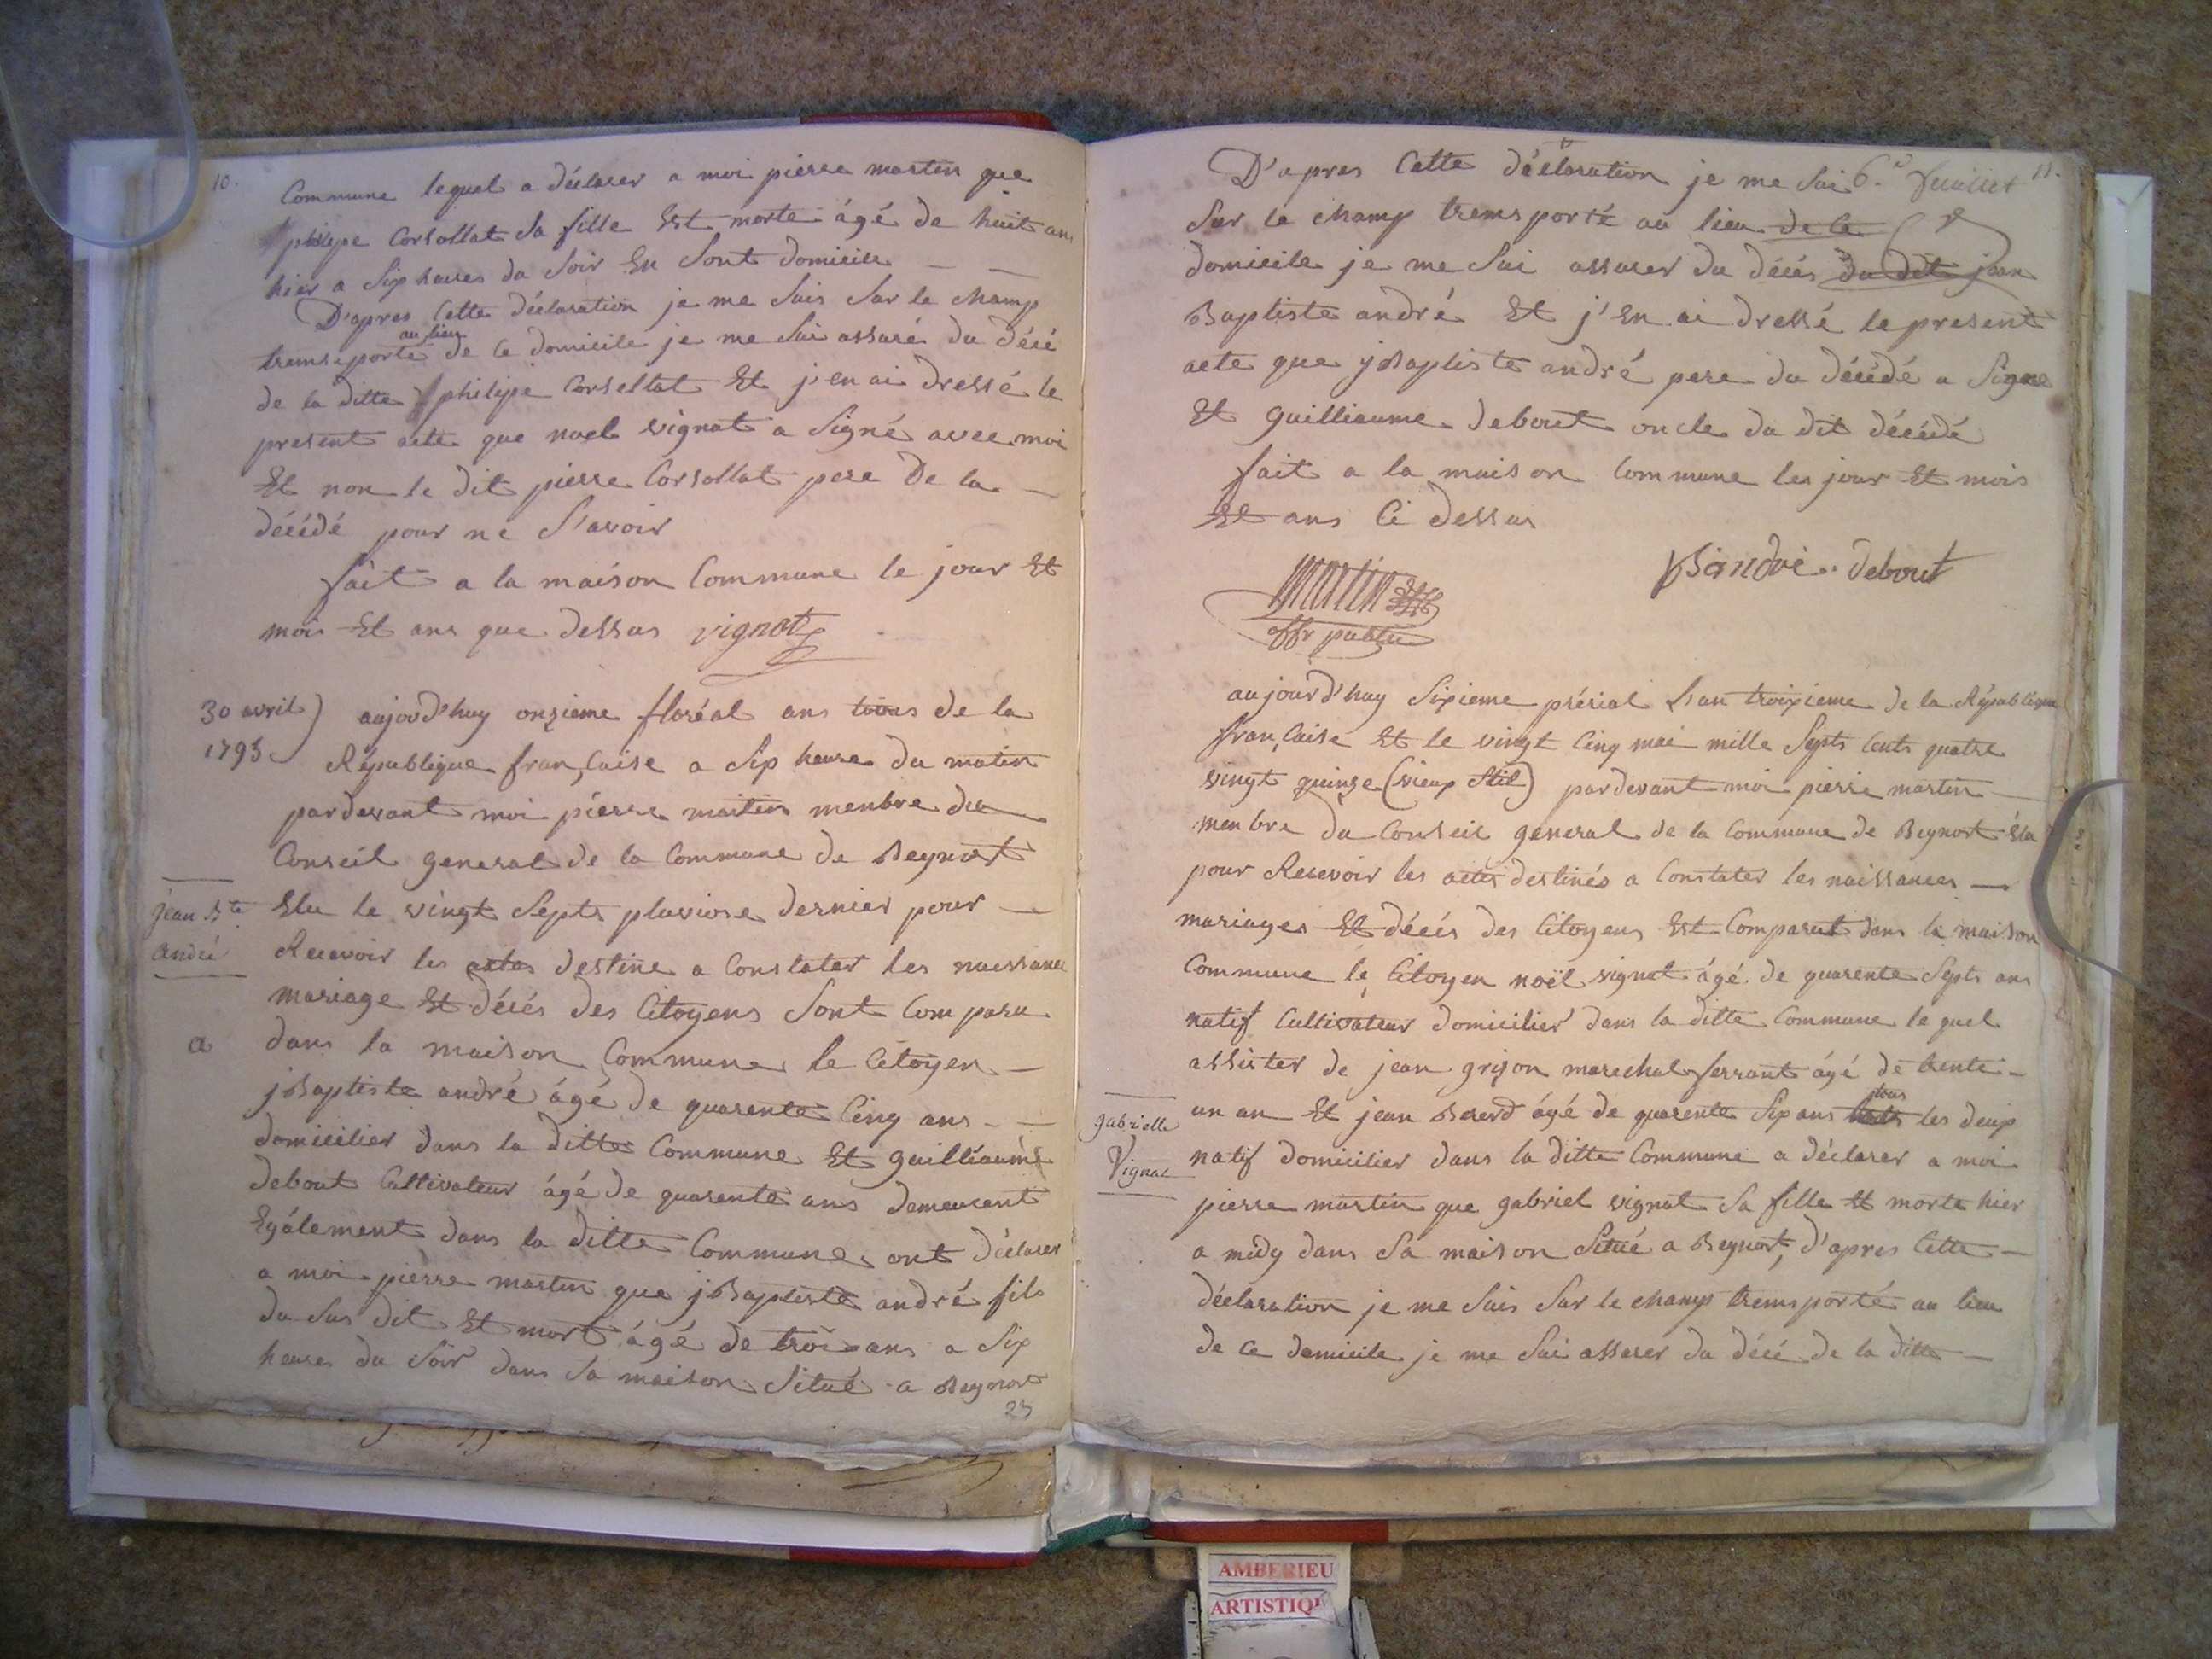 10.
Commune lequel a déclarer a moi pierre martin que
philipe Corsollat Sa fille Est morte âgé de huit ans
hier a Six heures du Soir En Sont domicile
D'apres Cette déclaration je me Suis Sur le champ
au lieu
transporté de Ce domicile je me Sui assuré du décé
de la ditte philipe Corsellat Et j'en ai dressé le
present acte que noel vignat a Signé avec moi
Et non le dit pierre Corsollat pere De la
décédé pour ne S'avoir
fait a la maison Commune le jour Et
mois Et ans que dessus vignat
30 avril
1795
aujourd'huy onzieme floréal ans trois de la
République française a Six heure du matin
pardevant moi pierre martin menbre du
Conseil general de la Commune de Beynost
jean Bte
andré
Elu le vingt Septs pluviose dernier pour
Recevoir les actes destine a Constater les naissance
mariage Et décés des Citoyens Sont Comparu
a
dans la maison Commune le Citoyen
jBaptiste andré âgé de quarente Cinq ans
domicilier dans la ditte Commune Et guilliaume
debout Cultivateur âgé de quarente ans demeurent
Egálement dans la ditte Commune ont déclarer
a moi pierre martin que jBaptiste andré fils
du Sus dit Et mort âgé de trois ans a Six
heures du Soir dans Sa maison Situé a Beynost
23
6.e feuillet
11.
D'apres Cette déclaration je me Sui
Sur le champ transporté au lieu de Ce
domicile je me Sui assurer du décés du dit jean
Baptiste andré Et j'En ai dressé le present
acte que jBaptiste andré pere du décédé a Signe
Et guilliaume debout oncle du dit décédé
fait a la maison Commune les jour Et mois
Et ans Ci dessus
martin
offr public
jBandré debout
aujourd'huy Sixieme prérial L'an troixieme de la République
française Et le vingt Cinq mai mille Septs Cents quatre
vingt quinze (vieux Stil) pardevant moi pierre martin
menbre du Conseil general de la Commune de Beynost Elu
pour Recevoir les actes destinés a Constater les naissances
mariages Et décés des Citoyens Est Comparut dans la maison
Commune le Citoyen noël vignat âgé de quarente Septs ans
natif Cultivateur domicilier dans la ditte Commune le quel
assister de jean grison marechal ferrant âgé de trente
un an Et jean Bererd âgé de quarente Six ans tous les deux
gabrielle
Vignat
natif domicilier dans la ditte Commune a déclarer a moi
pierre martin que gabriel vignat Sa fille Et morte hier
a midy dans Sa maison Situé a Beynost, d'apres Cette
déclaration je me Suis Sur le champ transporté au lieu
de Ce domicile je me Sui assurer du décé de la ditte
AMBERIEU
ARTISTIQ